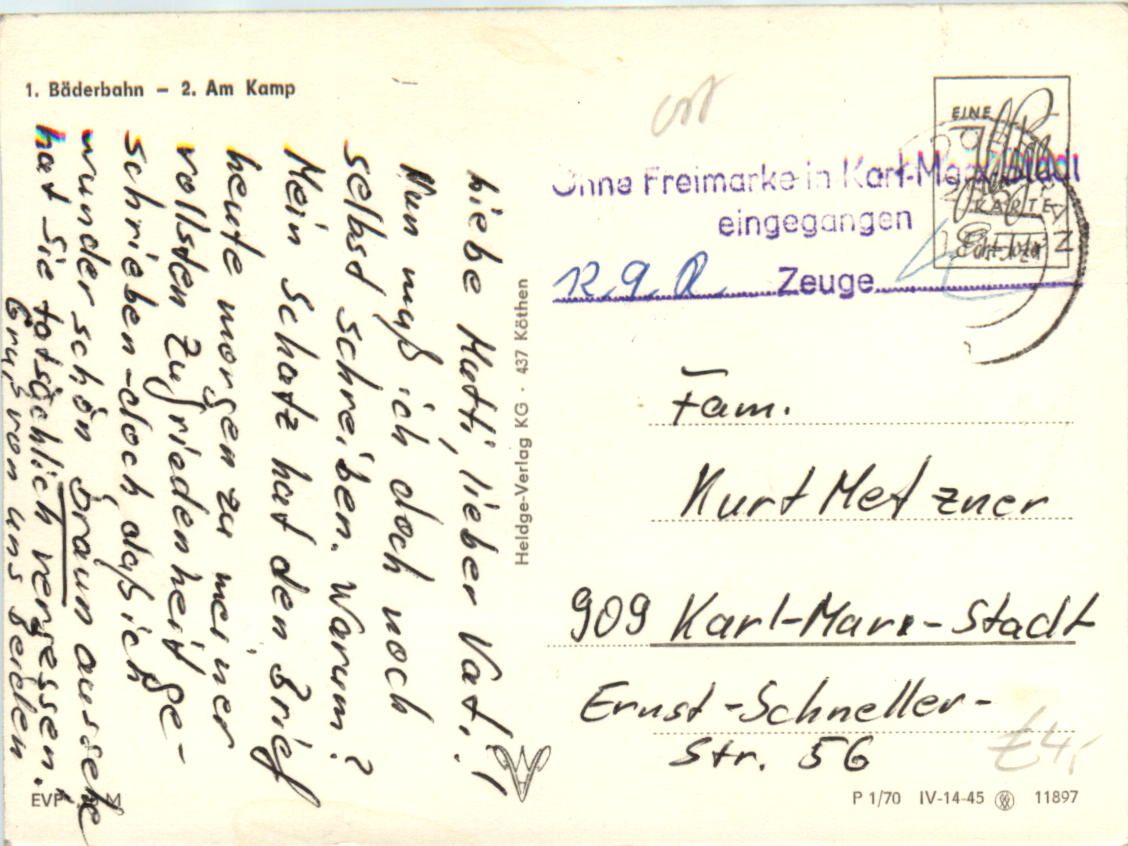 1. Bäderbahn – 2. Am Kamp
Liebe Mutti, lieber Vat.!
Nun muß ich doch noch
selbst schreiben. Warum?
Mein Schatz hat den Brief
heute morgen zu meiner
vollsten Zufriedenheit ge-
schrieben - doch daß ich
wunderschön braun aussehe
hat sie tatsächlich vergessen.
Gruß von uns beiden
EVP M
Heldge-Verlag KG · 437 Köthen
EINE
KARTE
Ohne Freimarke in Karl-Marx-Stadt
eingegangen
Zeuge
Fam.
Kurt Metzner
909 Karl-Marx-Stadt
Ernst-Schneller-
Str. 56
£4,-
P 1/70 IV-14-45 11897